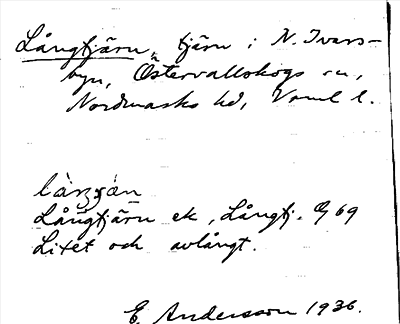 Långtjärn, tjärn i N. Ivars-
byn, Östervallskogs sn,
Nordmarks hd, Värml l.
Långtjärn ek, Långtj. 69
Litet och avlångt.
E. Andersson 1936.